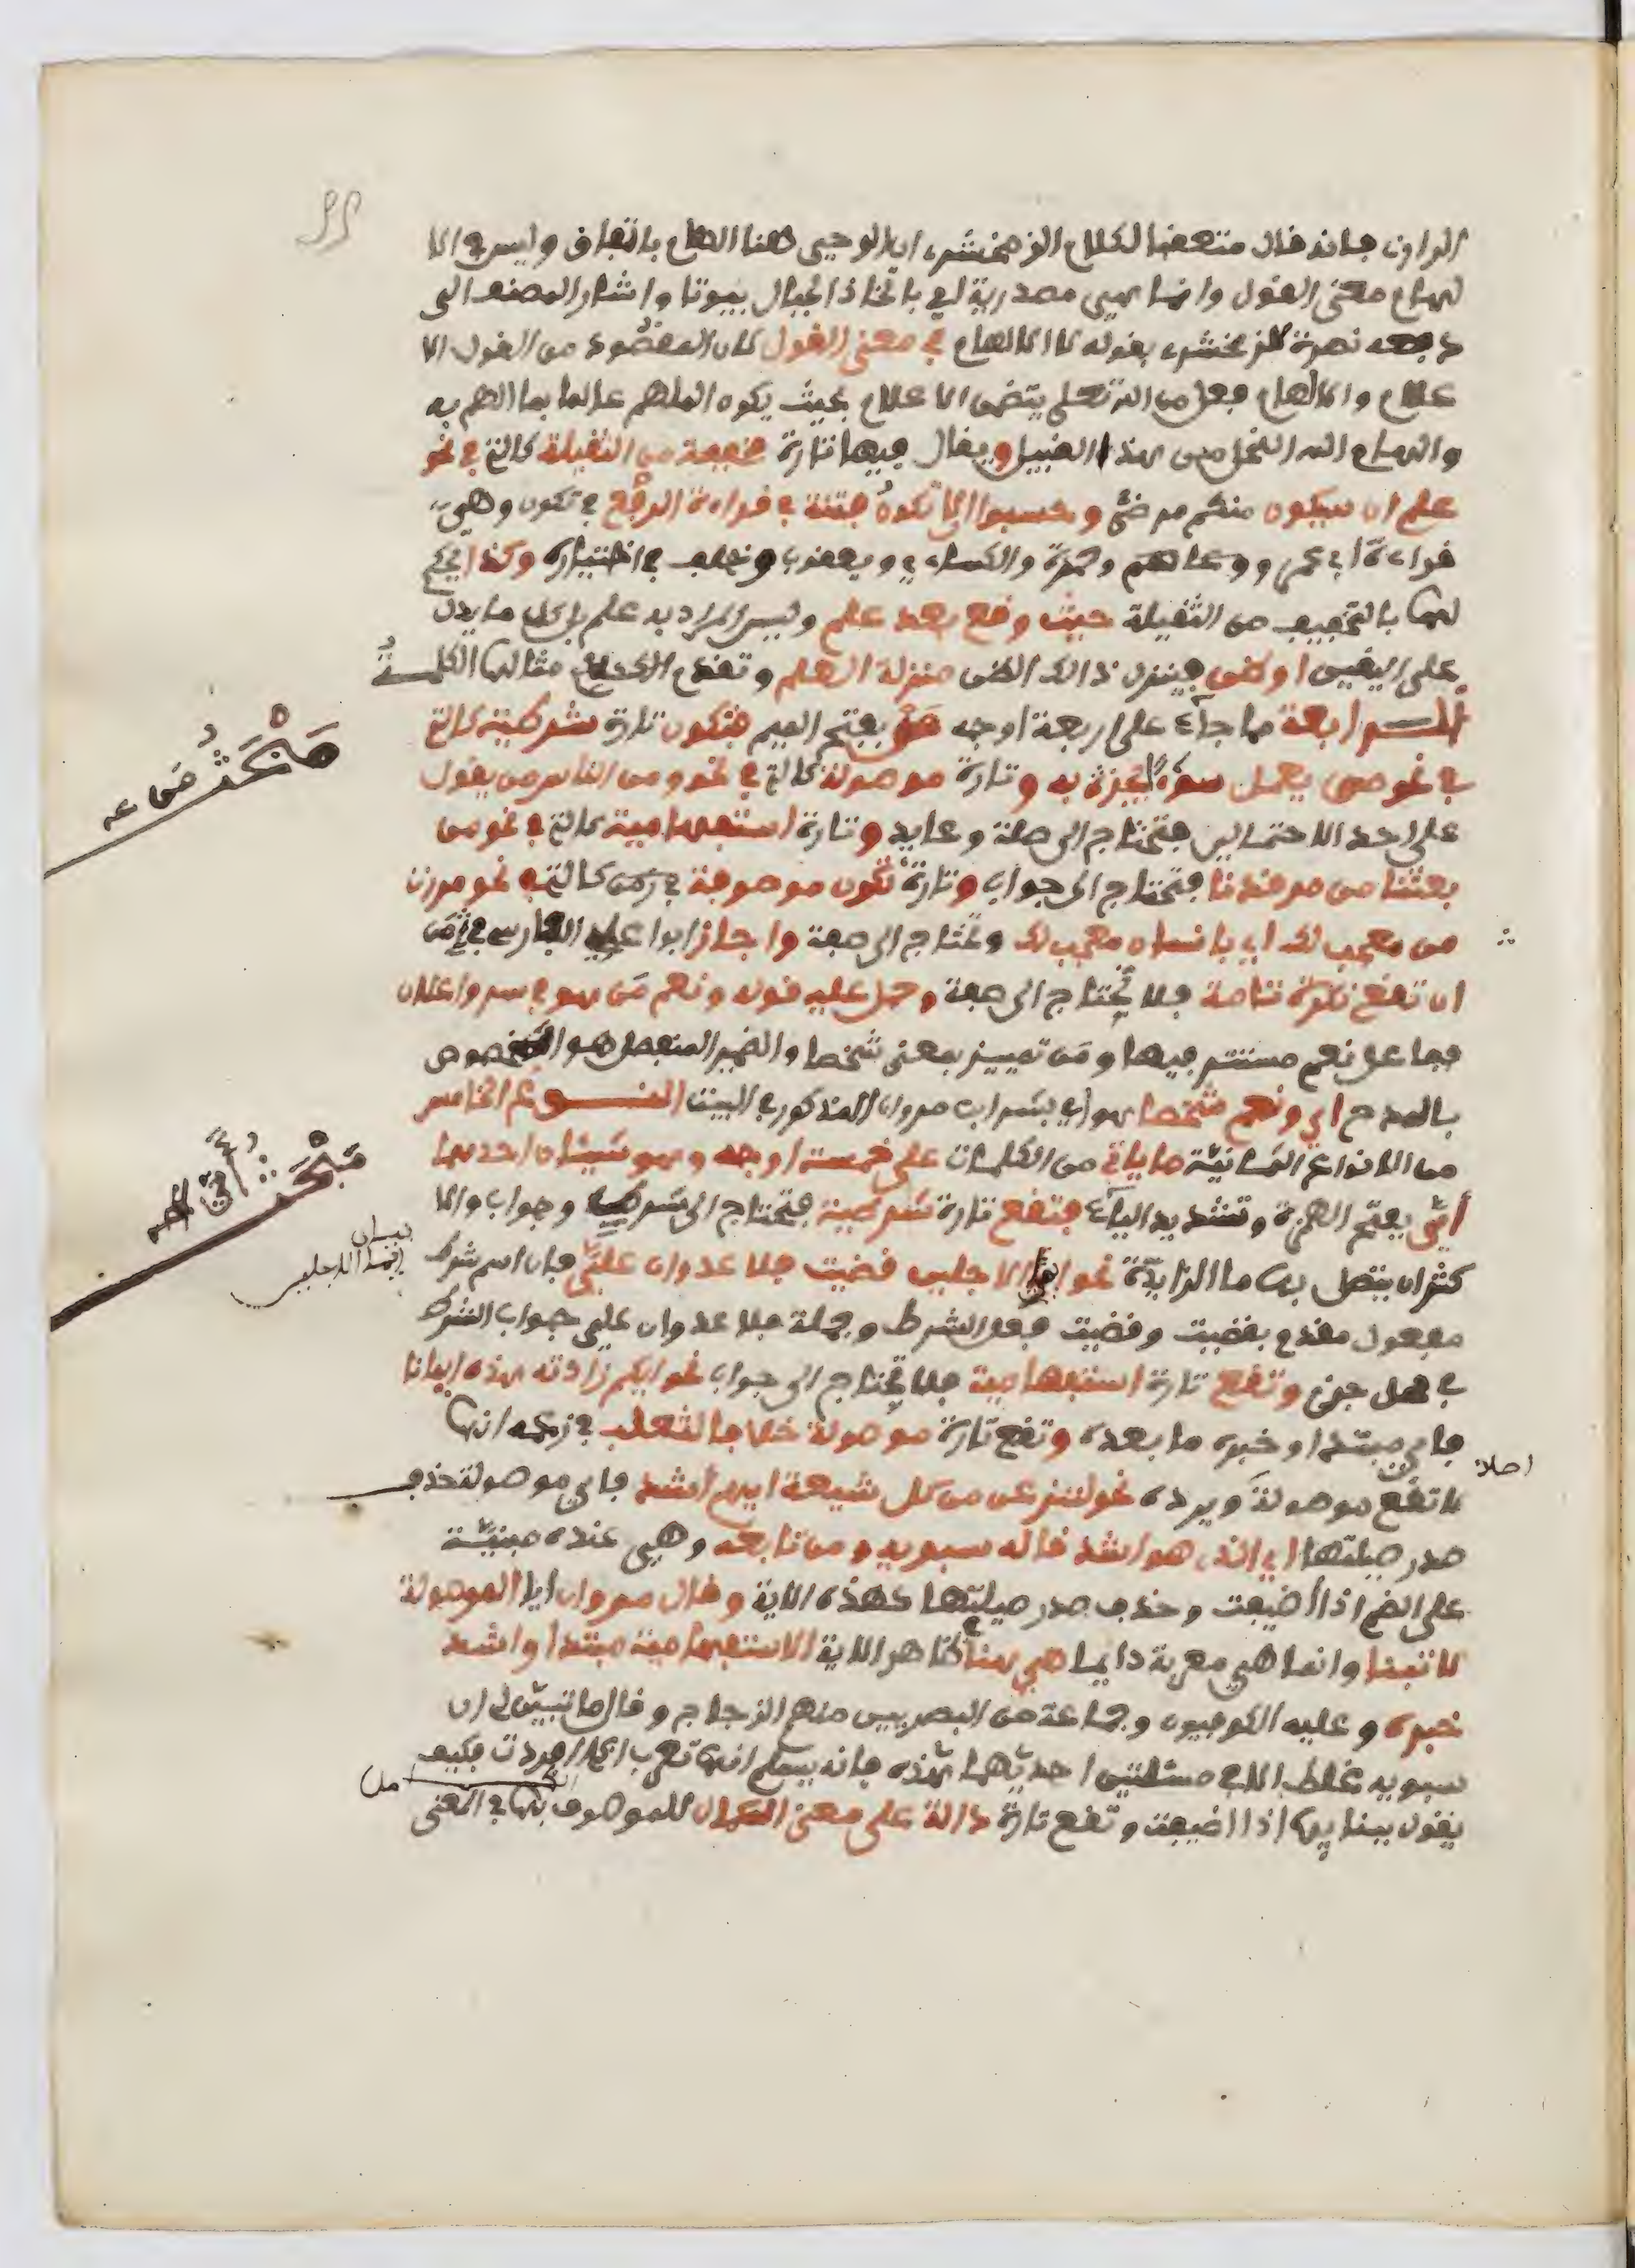 الرازي فإنه قال متعقبا لكلام الزمخشري ان الوحي هنا الهام باتفاق وليس في الا
لهام معنى القول وانما هي مصدرية اي باتخاذ الجبال بيوتا واشار المصنف الى
دفعه نصرة للزمخشري بقوله لان الالهام في معنى القول لان المقصود من القول الا
علام والالهام فعل من الله تعلى يتضمن الاعلام بحيث يكون الملهم عالما بما الهم به
والهام الله النحل من هذا القبيل ويقال فيها تارة مخففة من الثقيلة كالتي في نحو
علم ان سيكون منكم مرضى وحسبوا الا تكون فتنة في قراءة الرفع في تكون وهي
قراءة ابي عمرو وحمزة والكساءي ويعقوب وخلف في اختياره وكذا يحكم
لها بالتخفيف من الثقيلة حيث وقع بعد علم وليس المراد به علم بل كل ما يدل
على اليقين او ظن فينزل ذالك الظن منزلة العلم وتقدم مثالها الكلمة
الرابعة مما جاء على اربعة اوجه من بفتح الميم فتكون تارة شرطية كالتي
في نحو من يعمل سوءا يجز به وتارة موصولة كالتي في نحو ومن الناس من يقول
على احد الاحتمالين فتحتاج الى صلة وعايد وتارة استفهامية كالتي في نحو من
بعثنا من مرقدنا فتحتاج الى جواب وتارة تكون موصوفة في كالتي في نحو مررت
من معجب لك اي بانسان معجب لك وتحتاج الى صفة واجاز ابوا علي الفارسي في من
ان تقع نكرة تامة فلا تحتاج الى صفة وحمل عليه قوله ونعم من هو في سر واعلان
ففاعل نعم مستتر فيها ومن تمييز بمعنى شخصا والضمير المنفصل هو المخصوص
بالمدح اي ونعم شخصا هو اي بشر ابن مروان المذكور في البيت النوع الخامس
من الانواع الثمانية ما ياتي من الكلمات على خمسة اوجه وهو شيئان احدهما
أيّ بفتح الهمزة وتشديد الياء فتقع تارة شرطية فتحتاج الى شرط وجواب والا
كثر ان يتصل بها ما الزايدة نحو ايما الاجلين قضيت فلا عدوان عليّ فاي اسم شرط
مفعول مقدم بقضيت وقضيت فعل الشرط وجملة فلا عدوان علي جواب الشرط
في محل جزم وتقع تارة استفهامية فلا تحتاج الى جواب نحو ايكم زادته هذه ايمانا
فاي مبتدا وخبره ما بعده وتقع تارة موصولة خلافا لثعلب في زعمه انها
لا تقع موصولة ويرده نحو لننزعن من كل شيعة ايهم اشد فاي موصولة حذف
صدر صلتها اي الذي هو اشد قاله سبويه ومن تابعه وهي عنده مبنية
على الضم اذا أضيفت وحذف صدر صلتها كهذه الاية وقال من ان ايا الموصولة
لا تبنا وانما هي معربة دايما هي هنا كظاهر الاية الاستفهامية مبتدا واشد
خبره وعليه الكوفيون وجماعة من البصريين منهم الزجاج وقال ما تبين لي ان
سبويه غلط الا في مسئلتين احديهما هذه فانه يسلم انها تعرب اذا افردت فكيف
يقول ببنايها اذا اضيفت وتقع تارة دالة على معنى الكمال للموصوف بها في المعنى
مبحث من عه
مبحث أيّ
بيان
ايما الاجلين
اصلا